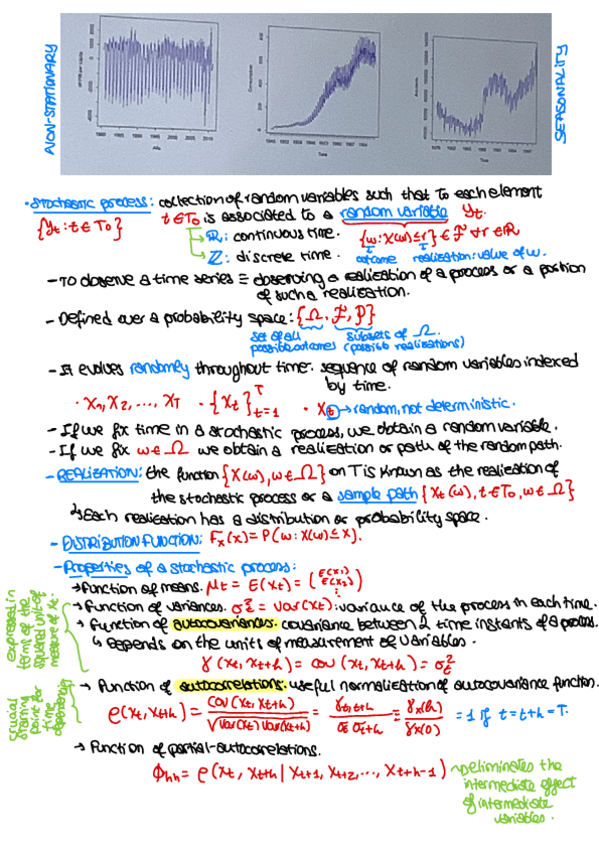 NON-STATIONARY
SEASONALITY
• Stochastic process: collection of random variables such that to each element
{Yt : t ∈ T0} t ∈ T0 is associated to a random variable Yt.
ℝ: continuous time. {ω: X(ω) ≤ r} ∈ F ∀ r ∈ ℝ
ℤ: discrete time. outcome realization: value of ω.
- To observe a time series ≡ observing a realization of a process or a portion
of such a realization.
- Defined over a probability space: {Ω, F, P}
set of all possible outcomes
subsets of Ω. (possible realizations)
- It evolves randomly throughout time. sequence of random variables indexed
by time.
• X1, X2, ..., XT • {Xt} T t=1 • Xt → random, not deterministic.
- If we fix time in a stochastic process, we obtain a random variable.
- If we fix ω ∈ Ω we obtain a realization or path of the random path.
- REALIZATION: the function {X(ω), ω ∈ Ω} on T is known as the realization of
the stochastic process or a sample path {Xt(ω), t ∈ T0, ω ∈ Ω}
↳ Each realization has a distribution or probability space.
- DISTRIBUTION FUNCTION: Fx(x) = P(ω: X(ω) ≤ x).
- Properties of a stochastic process:
→ Function of means. μt = E(Xt) = (E(X1) E(X2) ⋮)
→ Function of variances. σt² = Var(Xt): variance of the process in each time.
→ Function of autocovariances: covariance between 2 time instants of a process.
↳ Depends on the units of measurement of variables.
γ(Xt, Xt+h) = cov(Xt, Xt+h) = σt²
expressed in terms of the squared unit of measure of Xt.
→ Function of autocorrelations: useful normalization of autocovariance function.
ρ(Xt, Xt+h) = cov(Xt, Xt+h) / √Var(Xt) Var(Xt+h) = γt,t+h / σt σt+h ≡ γx(h) / γx(0) = 1 if t = t+h = T.
crucial starting point for time dependency
→ Function of partial-autocorrelations.
Φhh = ρ(Xt, Xt+h | Xt+1, Xt+2, ..., Xt+h-1) → eliminates the
intermediate effect
of intermediate
variables.